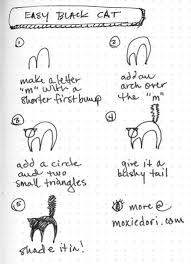 EASY BLACK CAT
1
make a letter
"m" with a
shorter first bump
2
add an
arch over
the "m"
3
add a circle
and two
small triangles
4
give it a
bushy tail
5
shade it in!
more @
moxiedori.com